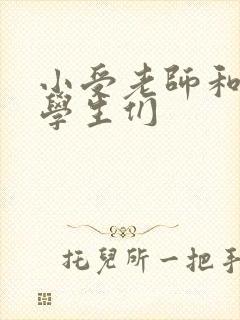 小受老師和
學生们
托兒所一把手